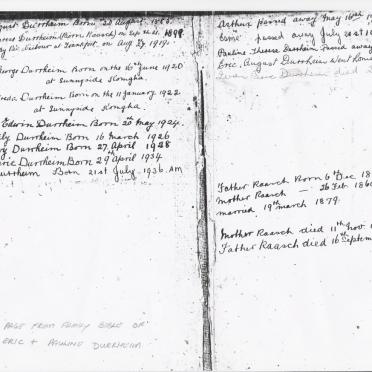 August Durrheim Born 22 August 1883.
Durrheim (Born Raasch) on Sep 1898
at Frankfort, on Aug 27 1919.
George Durrheim Born on the 16th June 1920
at Sunnyside Komgha.
Durrheim Born on the 11 January 1922
at Sunnyside Komgha.
Edwin Durrheim Born 20th May 1924.
Durrheim Born 16 March 1926
Durrheim Born 27th April 1928
Eric Durrheim Born 29th April 1934
Durrheim Born 21st July 1936. AM
PAGE FROM FAMILY BIBLE OF
ERIC + PAULINE DURRHEIM
Arthur passed away May 16th
passed away July 21st
Pauline Therese Durrheim passed away
Eric August Durrheim Went home
Durrheim died
Father Raasch Born 6th Dec 18
Mother Raasch — 26 Feb 1860
married 19th March 1879.
Mother Raasch died 11th Nov. 1
Father Raasch died 16th Septem